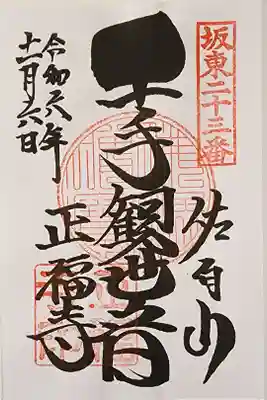 坂東二十三番
佐白山
千手観世音
正福寺
令和六年
十一月六日